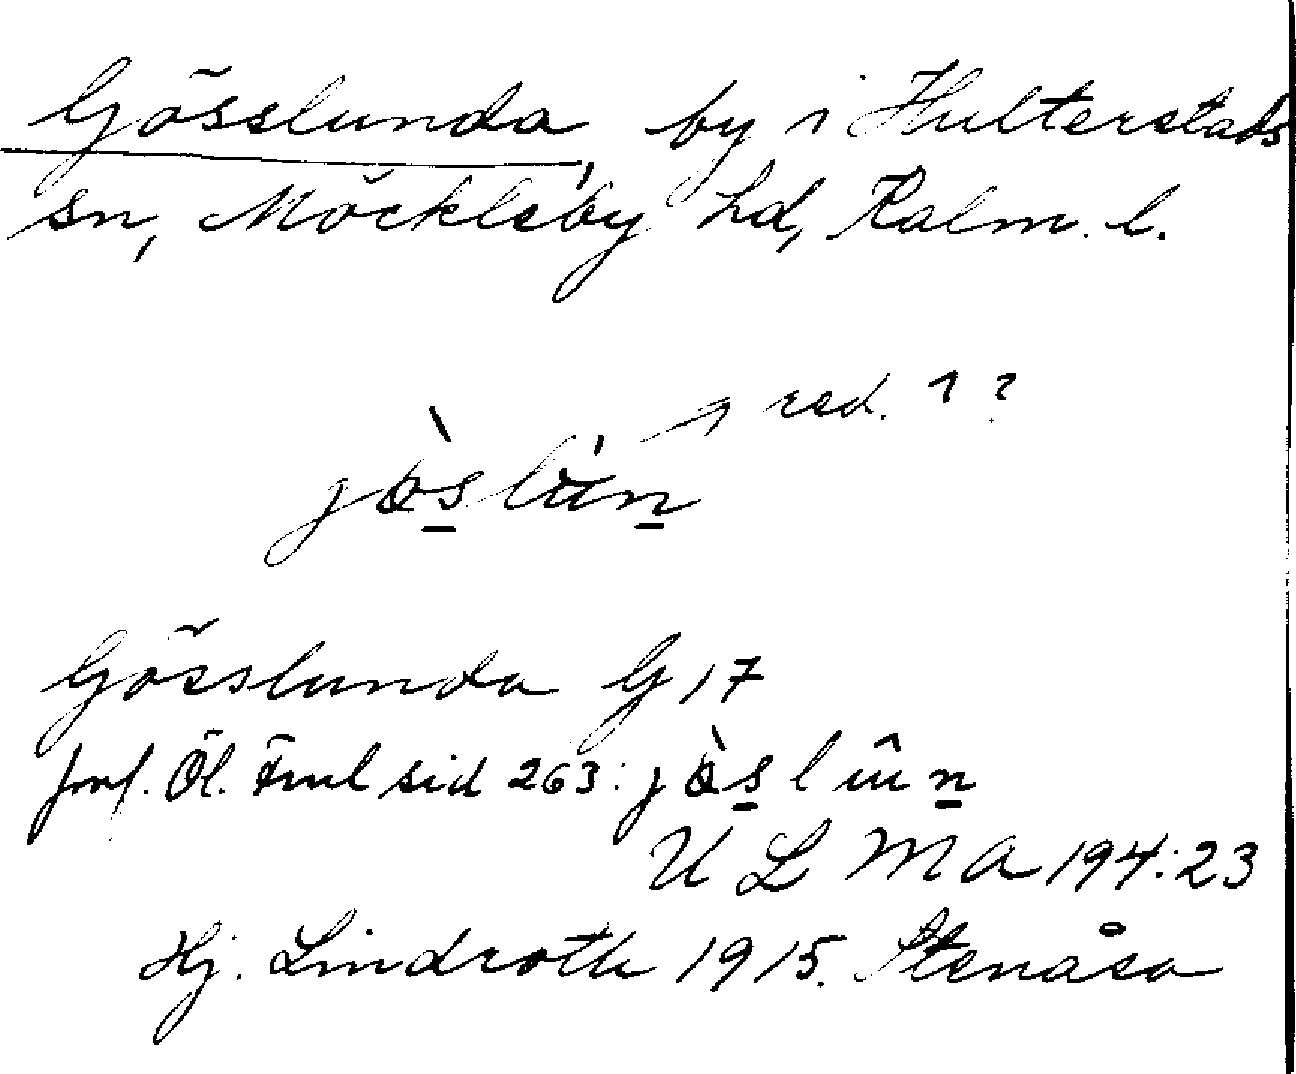 Gösslunda, by i Hulterstads
sn, Möckleby hd, Kalm. l.
red. ?
Gösslunda G 17
jmf. Öl. Fml sid 263:
ULMA 194:23
Hj. Lindroth 1915. Stenåsa